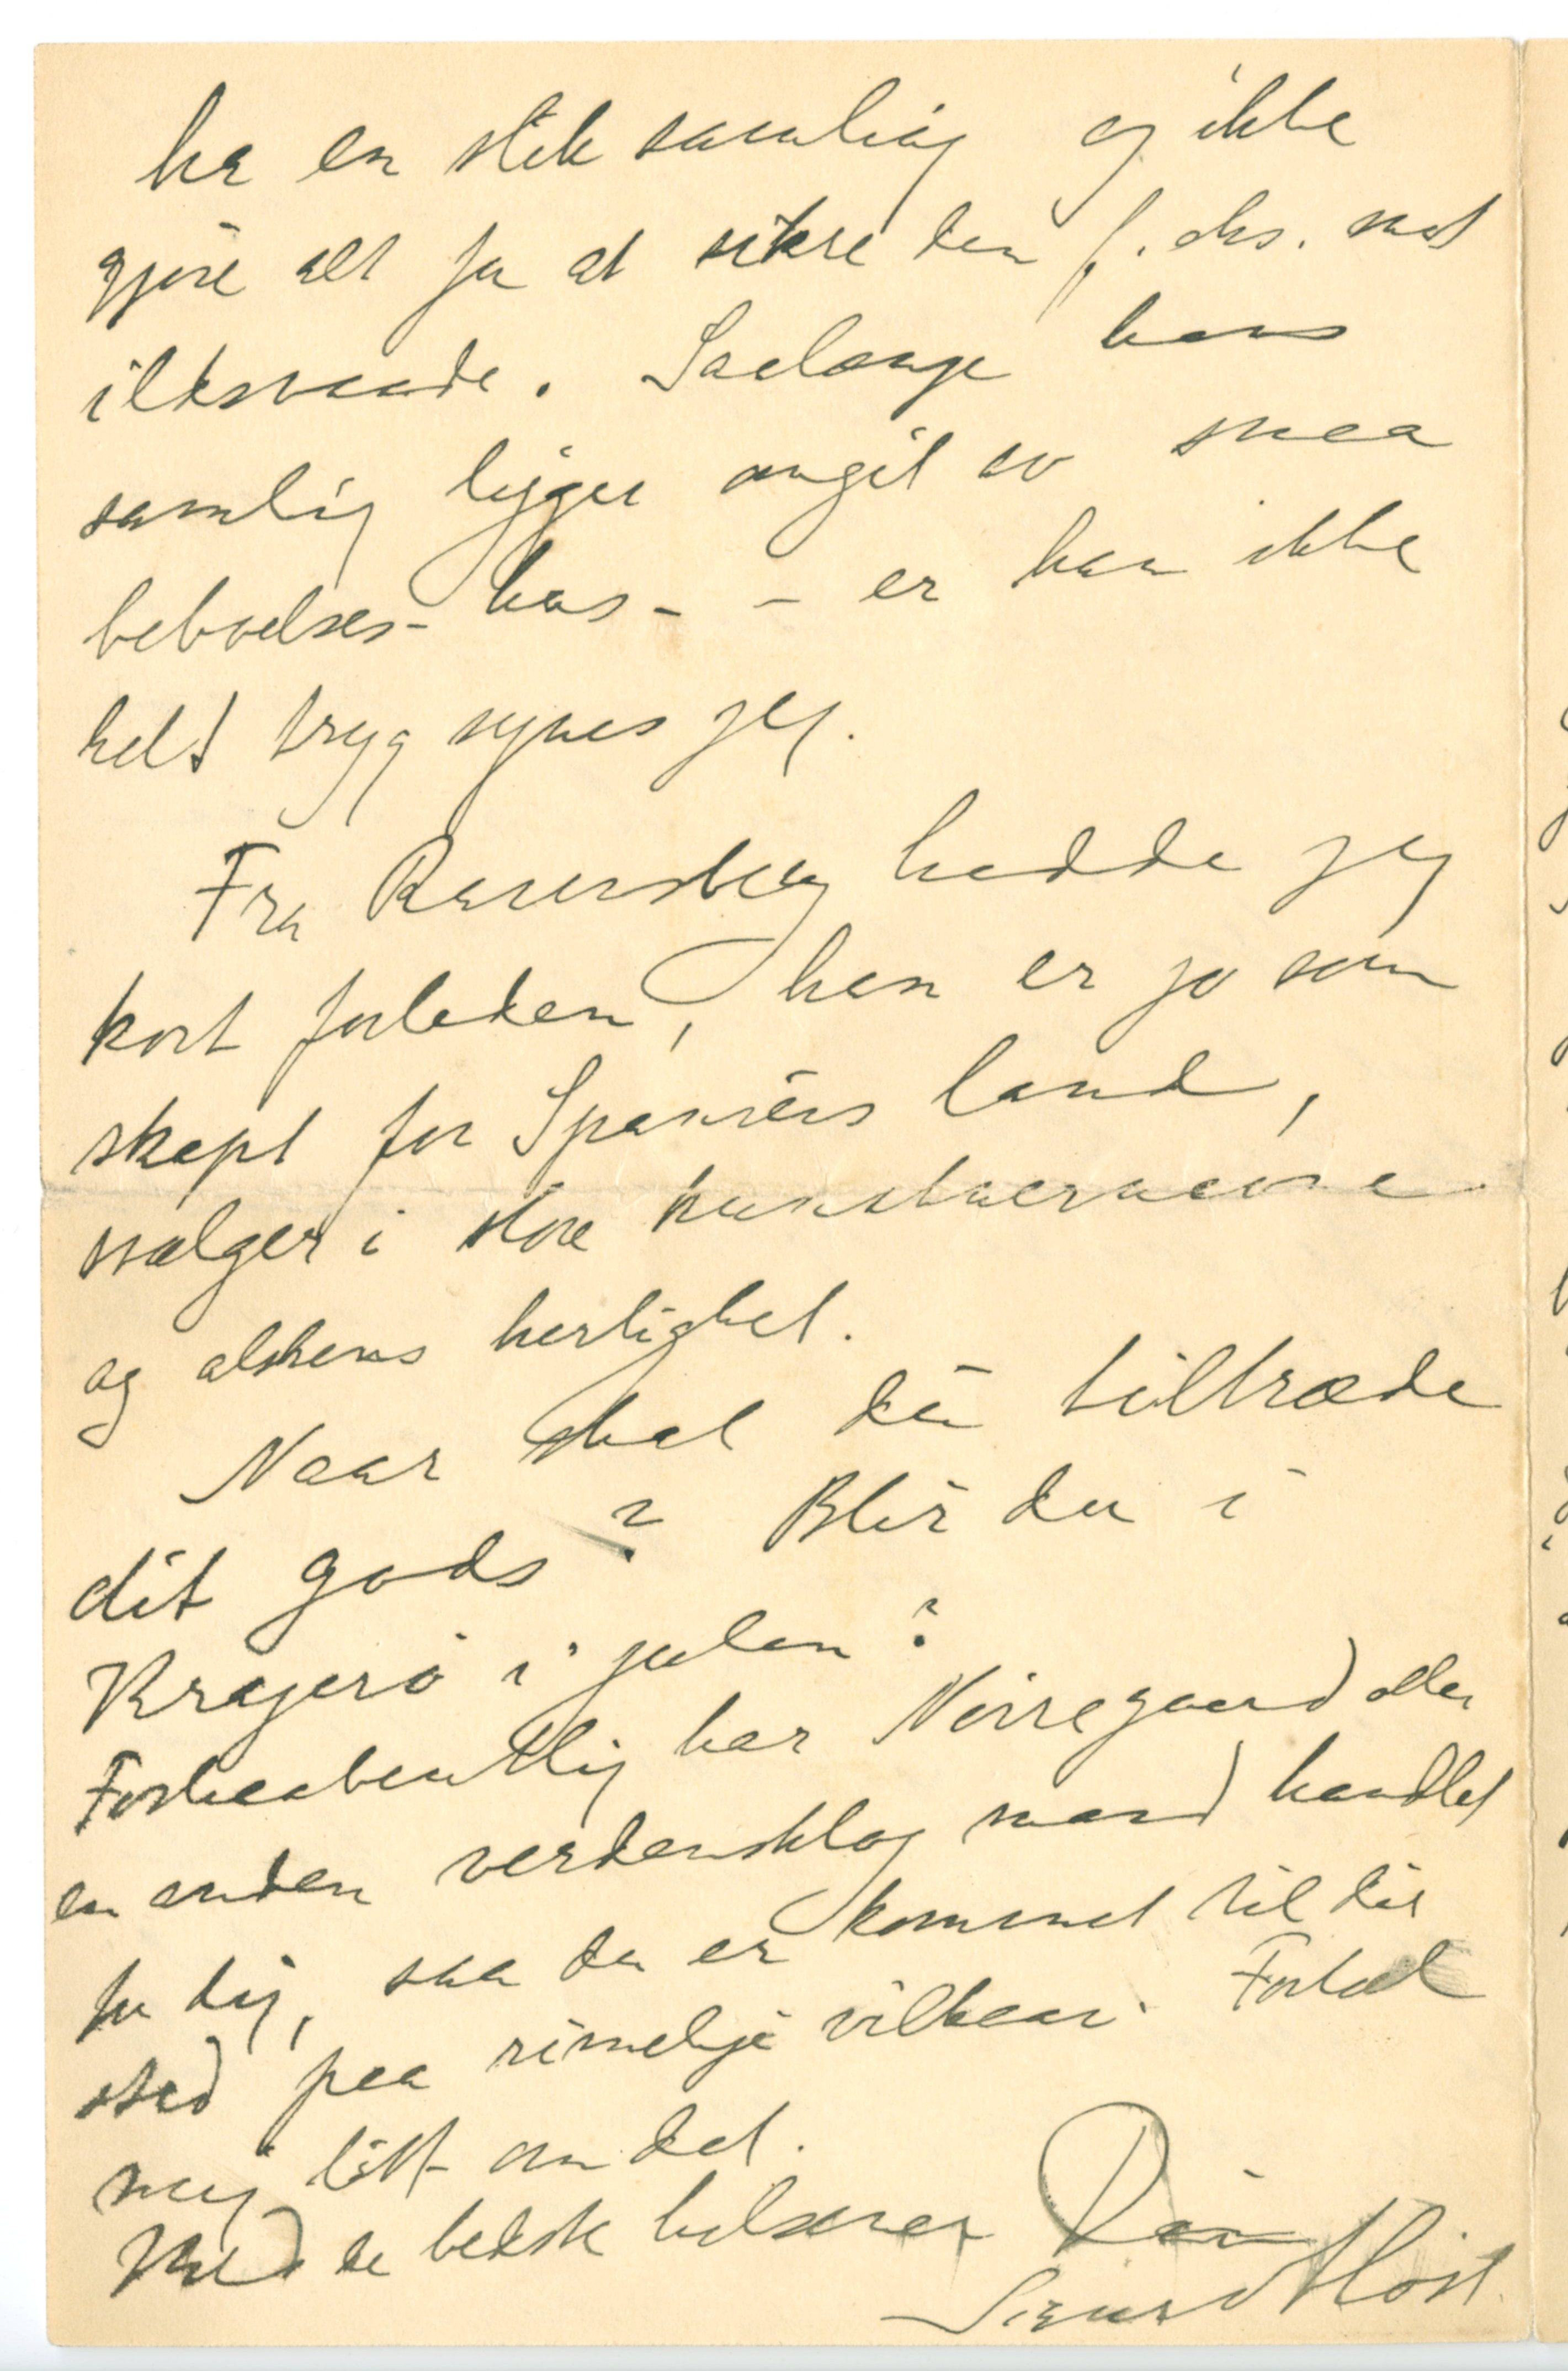 ha en slik samling og ikke
gjøre alt for at sikre den f. eks. mot
ildsvaade. Saalænge hans
samling ligger omgit av smaa
beboelses-hus - - er han ikke
helt tryg synes jeg.
Fra Ravensberg hadde jeg
kort forleden, han er jo som
skapt for Spaniens land,
svælger i store kunstnernavne
og alskens herlighet.
Naar skal du tiltræde
dit gods? Blir du i
Kragerö i julen?
Forhaabentlig har Nörregaard eller
en anden verdensklog mand handlet
for dig, saa du er kommet til dit
sted paa rimelige vilkaar. Fortæl
mig litt om det.
Med de bedste hilsener Din
Sigurd Höst.